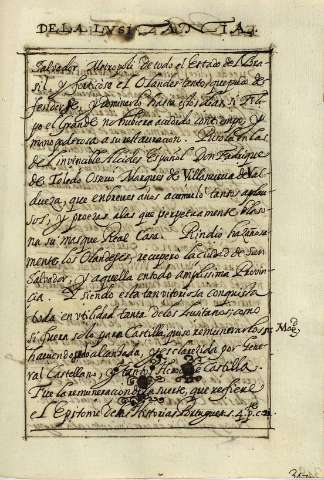 DE LA LVSITANIA.
Salvador Metropoli de todo el Estado del Bra-
sil y fortificose el Olandes tanto, que pudo de-
fenderse, y dominarlo hasta estos dias si Fili-
po el Grande no hubiera acudido con tiempo, y
mano poderosa a su restauracion.
del invincible Alcides Español Don Fadrique
de Toledo Osorio Marques de Villanueva de Val-
dueza, que en breves años acumulo tantos aplau-
sos, y proezas a las que perpetuamente blaso-
na su mas que Real Casa. Rindio hazañosa-
mente los Olandeses, recupero la ciudad de San
Salvador, y aquella en todo amplissima Provin-
cia. siendo esta tan vitoriosa conquista
toda en utilidad tanta de los Lusitanos; como
si fuera solo para Castilla, quiso remunerarlos su Mag.d
haviendose alcanzada, y esclarecida por Gene-
ral Castellano, y Armas de Castilla.
Fue la remuneracion de la suerte, que refiere
el Epitome de las Historias Portuguesas. 4. p. c.